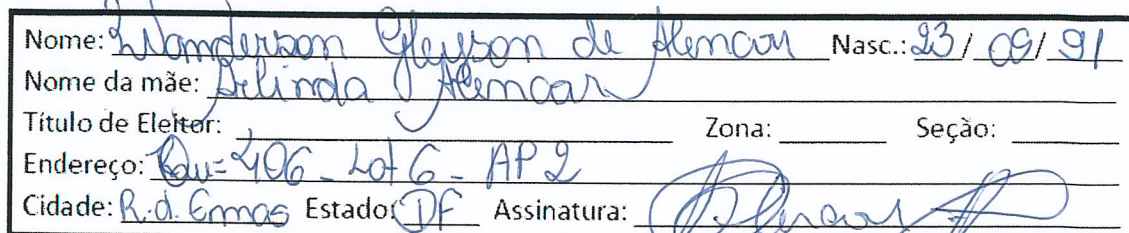 Nome: Wanderson Gleyson de Alencar Nasc.: 23/09/91
Nome da mãe: Arlinda Alencar
Título de Eleitor: Zona: Seção:
Endereço: 406 - Lot 6 - AP 2
Cidade: R.d. Emas Estado: DF Assinatura: